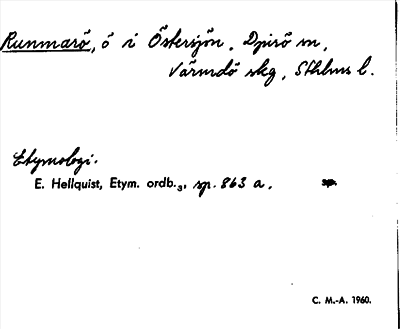 Runmarö, ö i Östersjön, Djurö sn,
Värmdö skg, Sthlms l.
Etymologi.
E. Hellquist, Etym. ordb.₃, sp. 863 a.
C. M.-A. 1960.